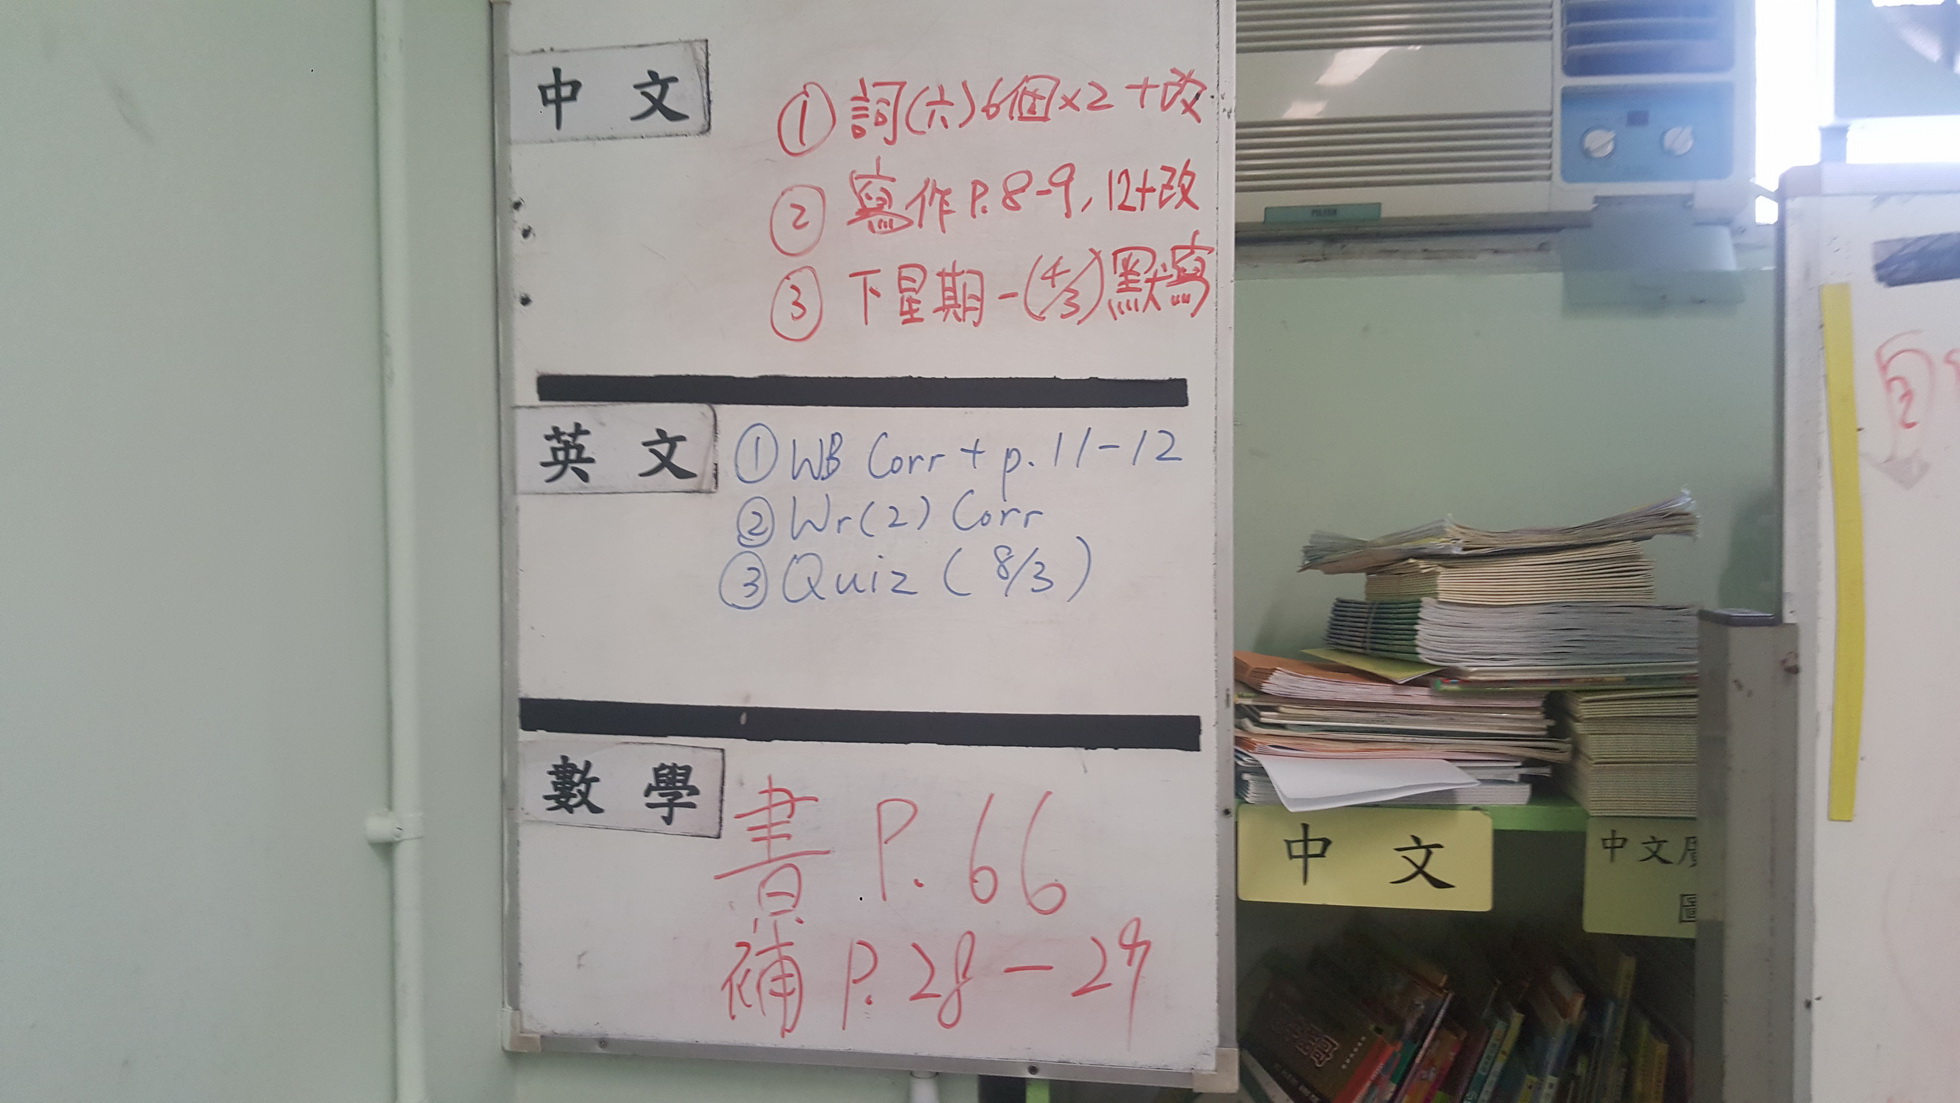 中文
① 詞(六)6個x2+改
② 寫作P.8-9,12+改
③ 下星期一(4/3)默寫
英文
① WB Corr + p.11-12
② Wr(2) Corr
③ Quiz (8/3)
數學
書 P.66
補 P.28-29
中文
中文
圖